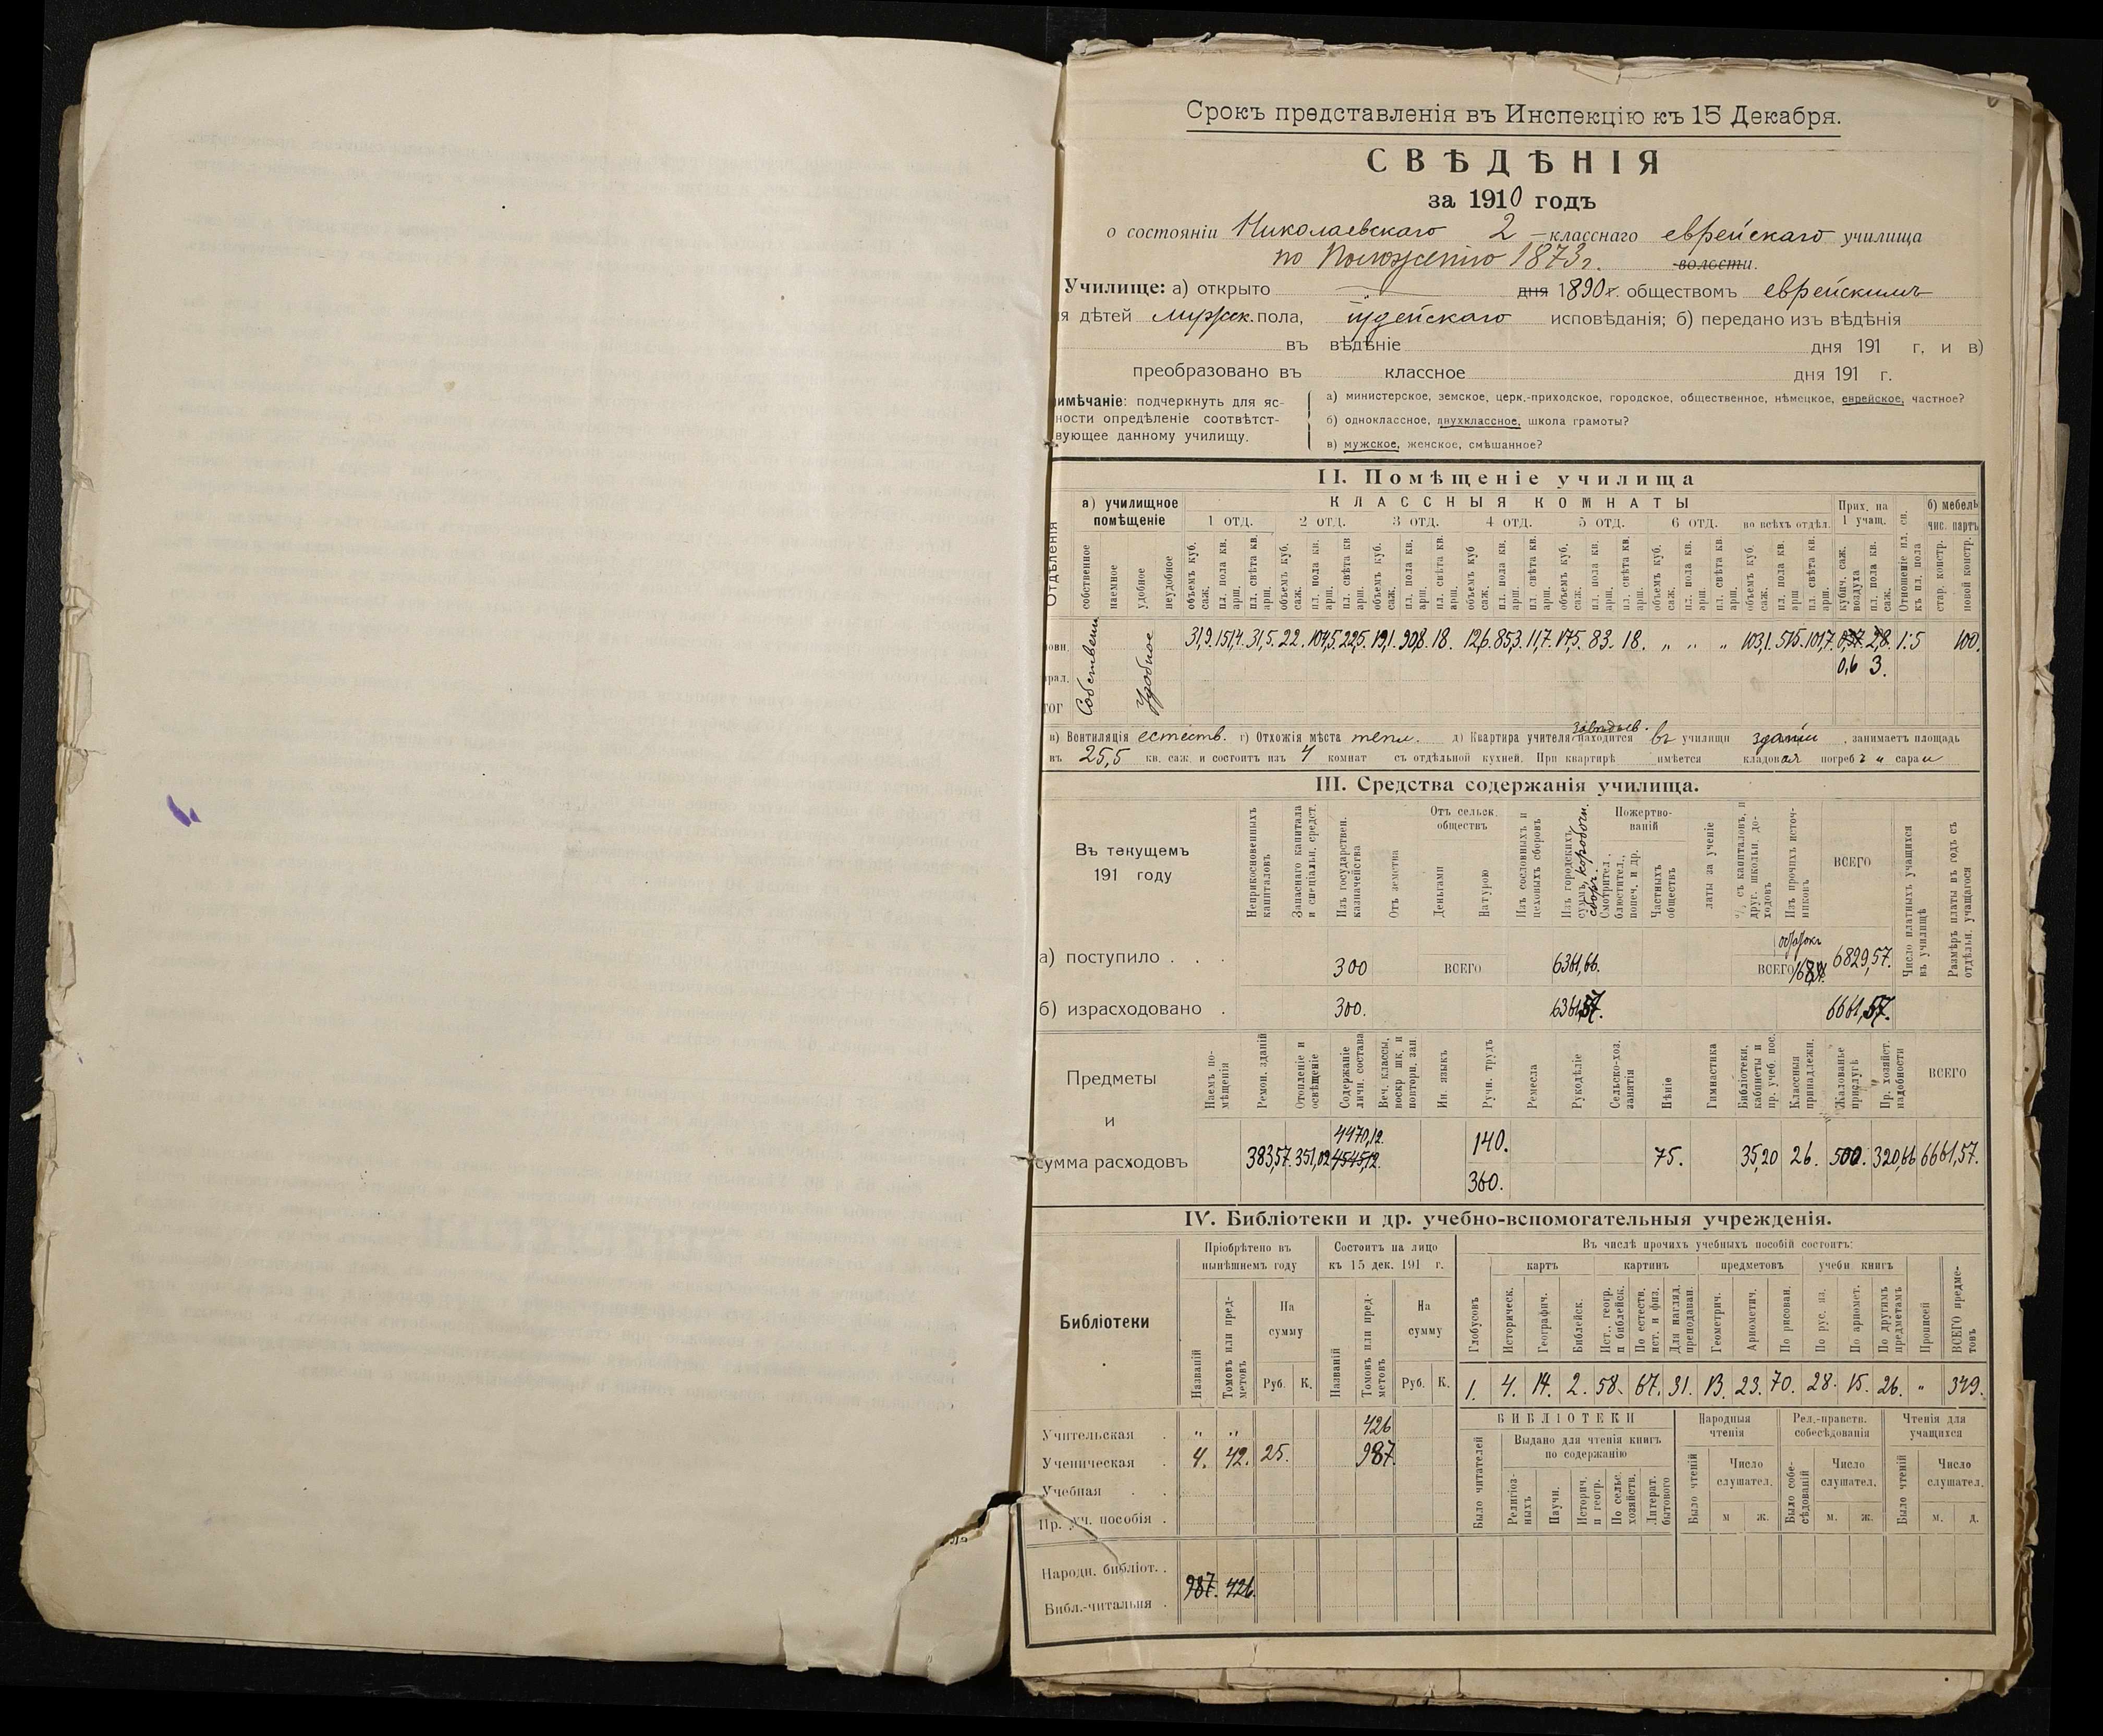 Срокъ представленія въ Инспекцію къ 15 Декабря.
СВѢДѢНІЯ
за 1910 годъ
о состояніи Николаевскаго 2 -класснаго еврейскаго училища
по Положенію 1873 г. волости.
Училище: а) открыто дня 1890 г. обществомъ еврейскимъ
я дѣтей мужск. пола, іудейскаго исповѣданія; б) передано изъ вѣдѣнія
въ вѣдѣніе дня 191 г. и в)
преобразовано въ классное дня 191 г.
имѣчаніе: подчеркнуть для яс-
ности опредѣленіе соотвѣтст-
вующее данному училищу.
а) министерское, земское, церк.-приходское, городское, общественное, нѣмецкое, еврейское, частное?
б) одноклассное, двухклассное, школа грамоты?
в) мужское, женское, смѣшанное?
II. Помѣщеніе училища
Отдѣленія
а) училищное помѣщеніе
КЛАССНЫЯ КОМНАТЫ
Прих. на 1 учащ.
Отношеніе пл. св. къ пл. пола
б) мебель
чис. партъ
1 отд. 2 отд. 3 отд. 4 отд. 5 отд. 6 отд. во всѣхъ отдѣл.
собственное наемное удобное неудобное
объемъ куб. саж. пл. пола кв. арш. пл. свѣта кв. арш.
объемъ куб. саж. пл. пола кв. арш. пл. свѣта кв. арш.
объемъ куб. саж. пл. пола кв. арш. пл. свѣта кв. арш.
объемъ куб. саж. пл. пола кв. арш. пл. свѣта кв. арш.
объемъ куб. саж. пл. пола кв. арш. пл. свѣта кв. арш.
объемъ куб. саж. пл. пола кв. арш. пл. свѣта кв. арш.
объемъ куб. саж. пл. пола кв. арш. пл. свѣта кв. арш.
кубич. саж. воздуха пл. пола кв. саж.
стар. констр. новой констр.
овн. Собственн Удобное 31,9. 151,4. 31,5. 22. 104,5. 22,5. 19,1. 90,8. 18. 12,6. 85,3. 11,7. 17,5. 83. 18. „ „ „ 103,1. 515. 101,7. 0,37. 2,8. 1:5 100.
0,6 3.
рал.
тог
в) Вентиляція естеств. г) Отхожія мѣста тепл. д) Квартира учителя завѣдыв. находится въ училищн зданіи, занимаетъ площадь
въ 25,5 кв. саж. и состоитъ изъ 4 комнат съ отдѣльной кухней. При квартирѣ имѣется кладовая погребъ и сараи
III. Средства содержанія училища.
Въ текущемъ
191 году
Неприкосновенныхъ капиталовъ
Запаснаго капитала и спеціальн. средст.
Изъ государствен. казначейства
Отъ земства
Отъ сельск. обществъ
Деньгами
Натурою
Изъ сословныхъ и цеховыхъ сборовъ
Изъ городскихъ суммъ, коробочн. сборъ.
Пожертво-ваній
Смотрител., блюстител., попеч. и др.
Частныхъ обществъ
латы за ученіе
% съ капиталовъ, и друг. школьн. до-ходовъ
Изъ прочихъ источ-никовъ
ВСЕГО
Число платныхъ учащихся въ училищѣ
Размѣръ платы въ годъ съ отдѣльн. учащагося
а) поступило . . . 300 ВСЕГО 6361,66. ВСЕГО 6829,57.
б) израсходовано . 300. 6361,57. 6661,57.
Предметы
и
сумма расходовъ
Наемъ по-мѣщенія
Ремон. зданій
Отопленіе и освѣщеніе
Содержаніе личн. состава
Веч. классы, воскр шк. и повторн. зан.
Ин. языкъ
Ручн. трудъ
Ремесла
Рукодѣліе
Сельско-хоз. занятія
Пѣніе
Гимнастика
Библіотеки, кабинеты и пр. учеб. пос.
Классныя принадлежн.
Жалованье прислугѣ
Пр. хозяйст. надобности
ВСЕГО
4470,12. 140.
383,57. 351,02 4545,12. 75. 35,20 26. 500. 320,66 6661,57.
360.
IV. Библіотеки и др. учебно-вспомогательныя учрежденія.
Библіотеки
Пріобрѣтено въ нынѣшнемъ году
Состоитъ на лицо къ 15 дек. 191 г.
Въ числѣ прочихъ учебныхъ пособій состоитъ:
картъ картинъ предметовъ учебн книгъ
Названій
Томовъ или пред-метовъ
На сумму
Руб. К.
Названій
Томовъ или пред-метовъ
На сумму
Руб. К.
Глобусовъ
Историческ.
Географич.
Библейск.
Ист., геогр. и библейск.
По естеств. ист. и физ.
Для нагляд. преподаван.
Геометрич.
Ариометич.
По рисован.
По рус. яз.
По ариомет.
По другимъ предметамъ
Прописей
ВСЕГО предме-товъ
1. 4. 14. 2. 58. 67. 31. 13. 23. 70. 28. 15. 26. „ 349.
Учительская . „ „ 426
Ученическая . 4. 42. 25. 987.
Учебная . .
Пр. уч. пособія .
Народн. библіот. .
987. 426.
Библ.-читальня .
БИБЛІОТЕКИ
Выдано для чтенія книгъ по содержанію
Было читателей
Религіоз-ныхъ
Научн.
Историч. и геогр.
По сельс. хозяйств.
Литерат. бытового
Народныя чтенія
Было чтеній
Число слушател.
м ж.
Рел.-нравств. собесѣдованія
Было собе-сѣдованій
Число слушател.
м. ж.
Чтенія для учащихся
Было чтеній
Число слушател.
м. д.